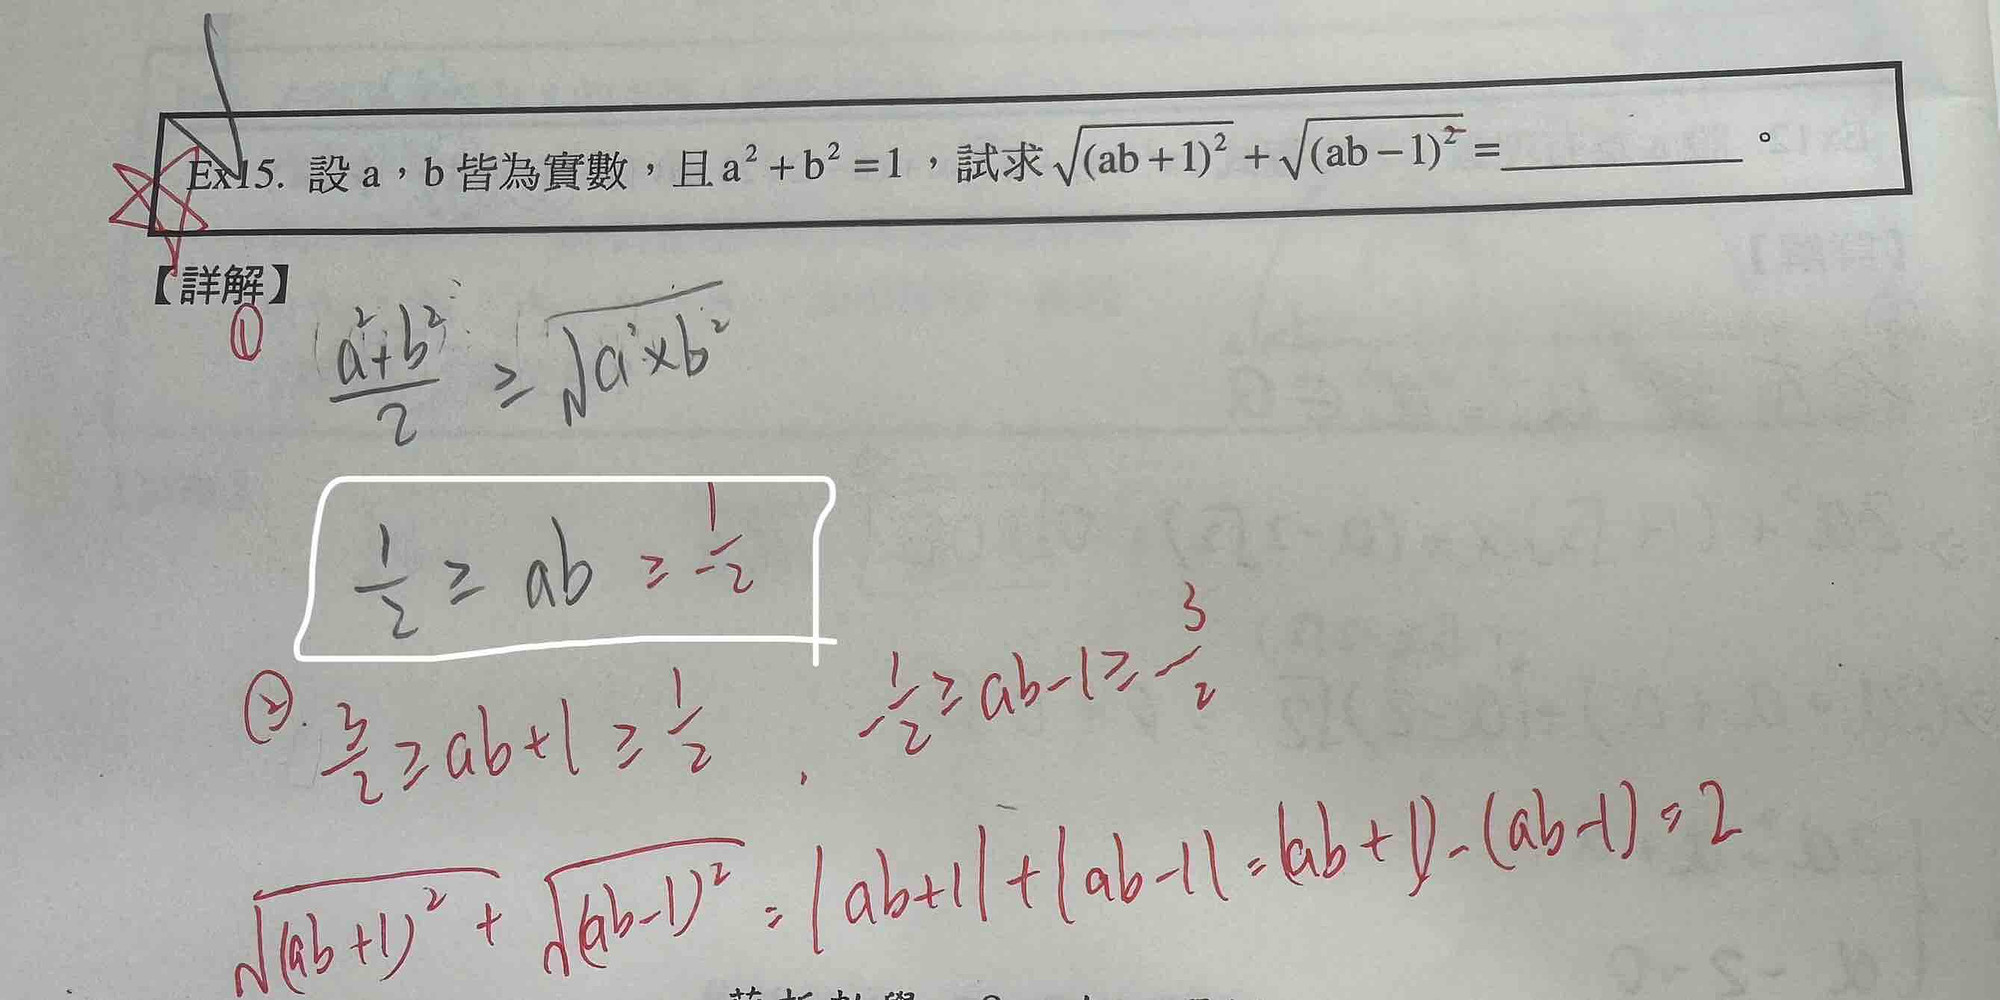 Ex15. 設 a，b 皆為實數，且 a² + b² = 1，試求 √(ab+1)² + √(ab−1)² = __________。
【詳解】
① (a²+b²)/2 ≥ √(a²×b²)
1/2 ≥ ab ≥ -1/2
②. 3/2 ≥ ab+1 ≥ 1/2 , -1/2 ≥ ab-1 ≥ -3/2
√(ab+1)² + √(ab-1)² = |ab+1| + |ab-1| = (ab+1) - (ab-1) = 2